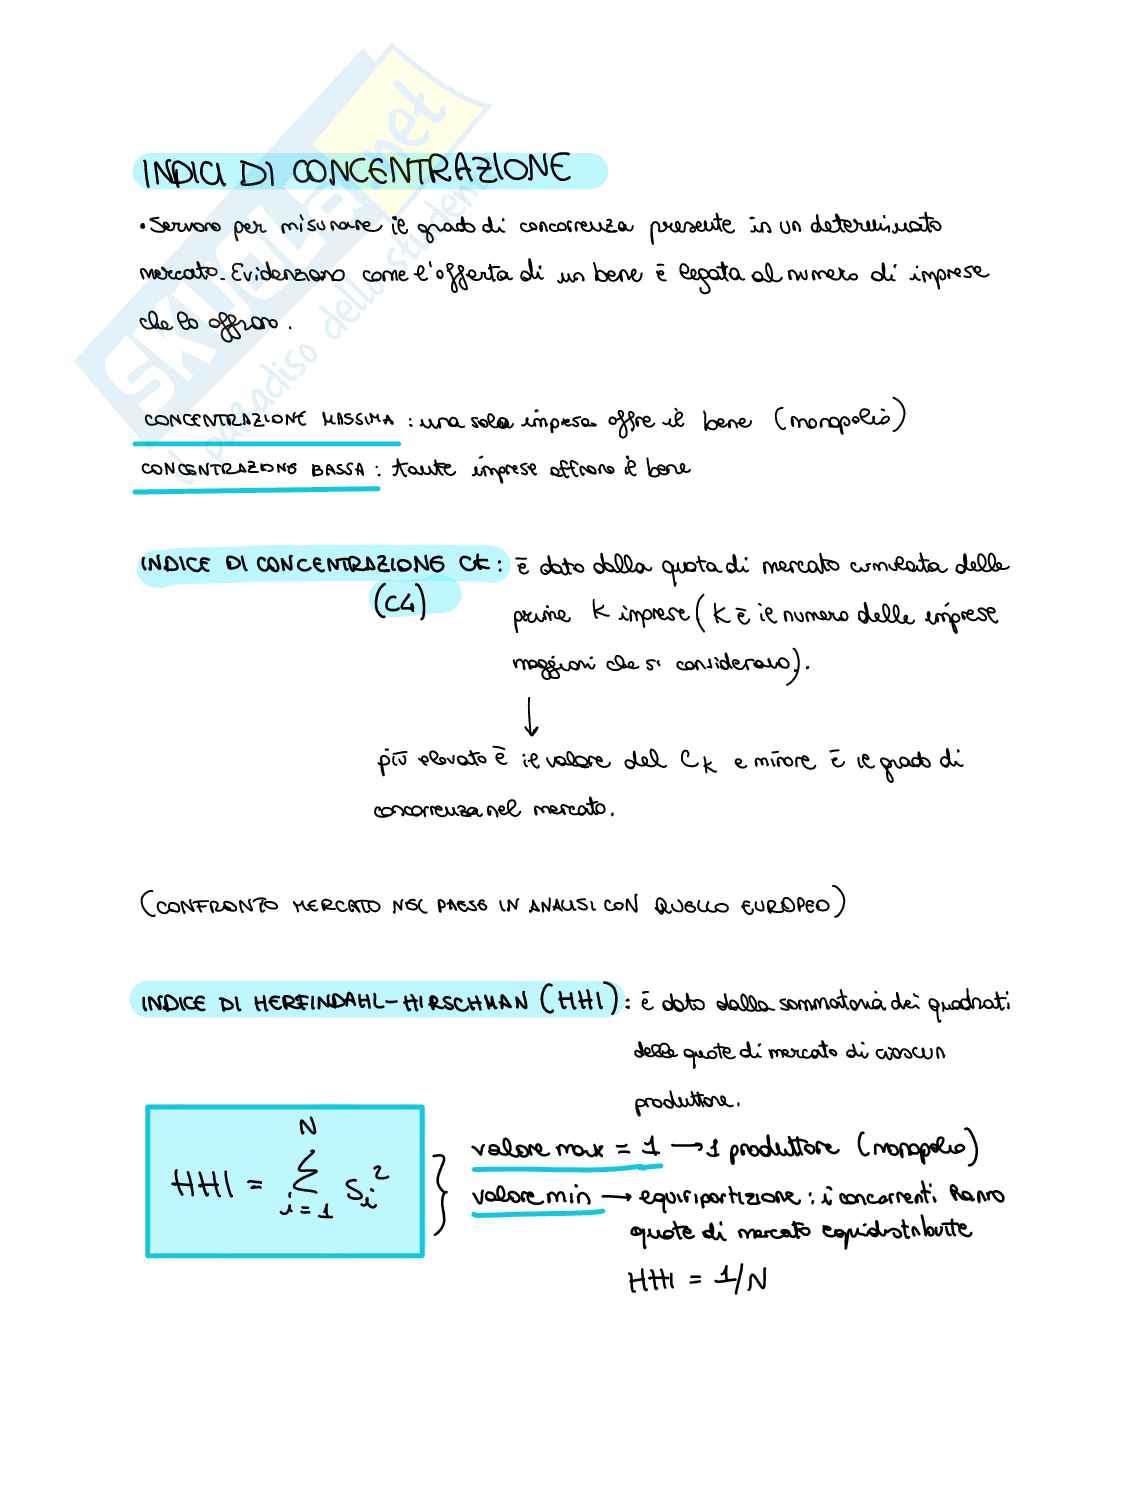 SKUOLA.net
il paradiso dello studente
INDICI DI CONCENTRAZIONE
• Servono per misurare il grado di concorrenza presente in un determinato
mercato. Evidenziano come l'offerta di un bene è legata al numero di imprese
che lo offrono.
CONCENTRAZIONE MASSIMA : una sola impresa offre il bene (monopolio)
CONCENTRAZIONE BASSA : tante imprese offrono il bene
INDICE DI CONCENTRAZIONE CK : è dato dalla quota di mercato cumulata delle
(C4)
prime K imprese (K è il numero delle imprese
maggiori che si considerano).
↓
più elevato è il valore del CK e minore è il grado di
concorrenza nel mercato.
(CONFRONTO MERCATO NEL PAESE IN ANALISI CON QUELLO EUROPEO)
INDICE DI HERFINDAHL-HIRSCHMAN (HHI) : è dato dalla sommatoria dei quadrati
delle quote di mercato di ciascun
produttore.
HHI = ∑ᵢ₌₁ᴺ sᵢ²
valore max = 1 → 1 produttore (monopolio)
valore min → equiripartizione : i concorrenti hanno
quote di mercato equidistribuite
HHI = 1/N